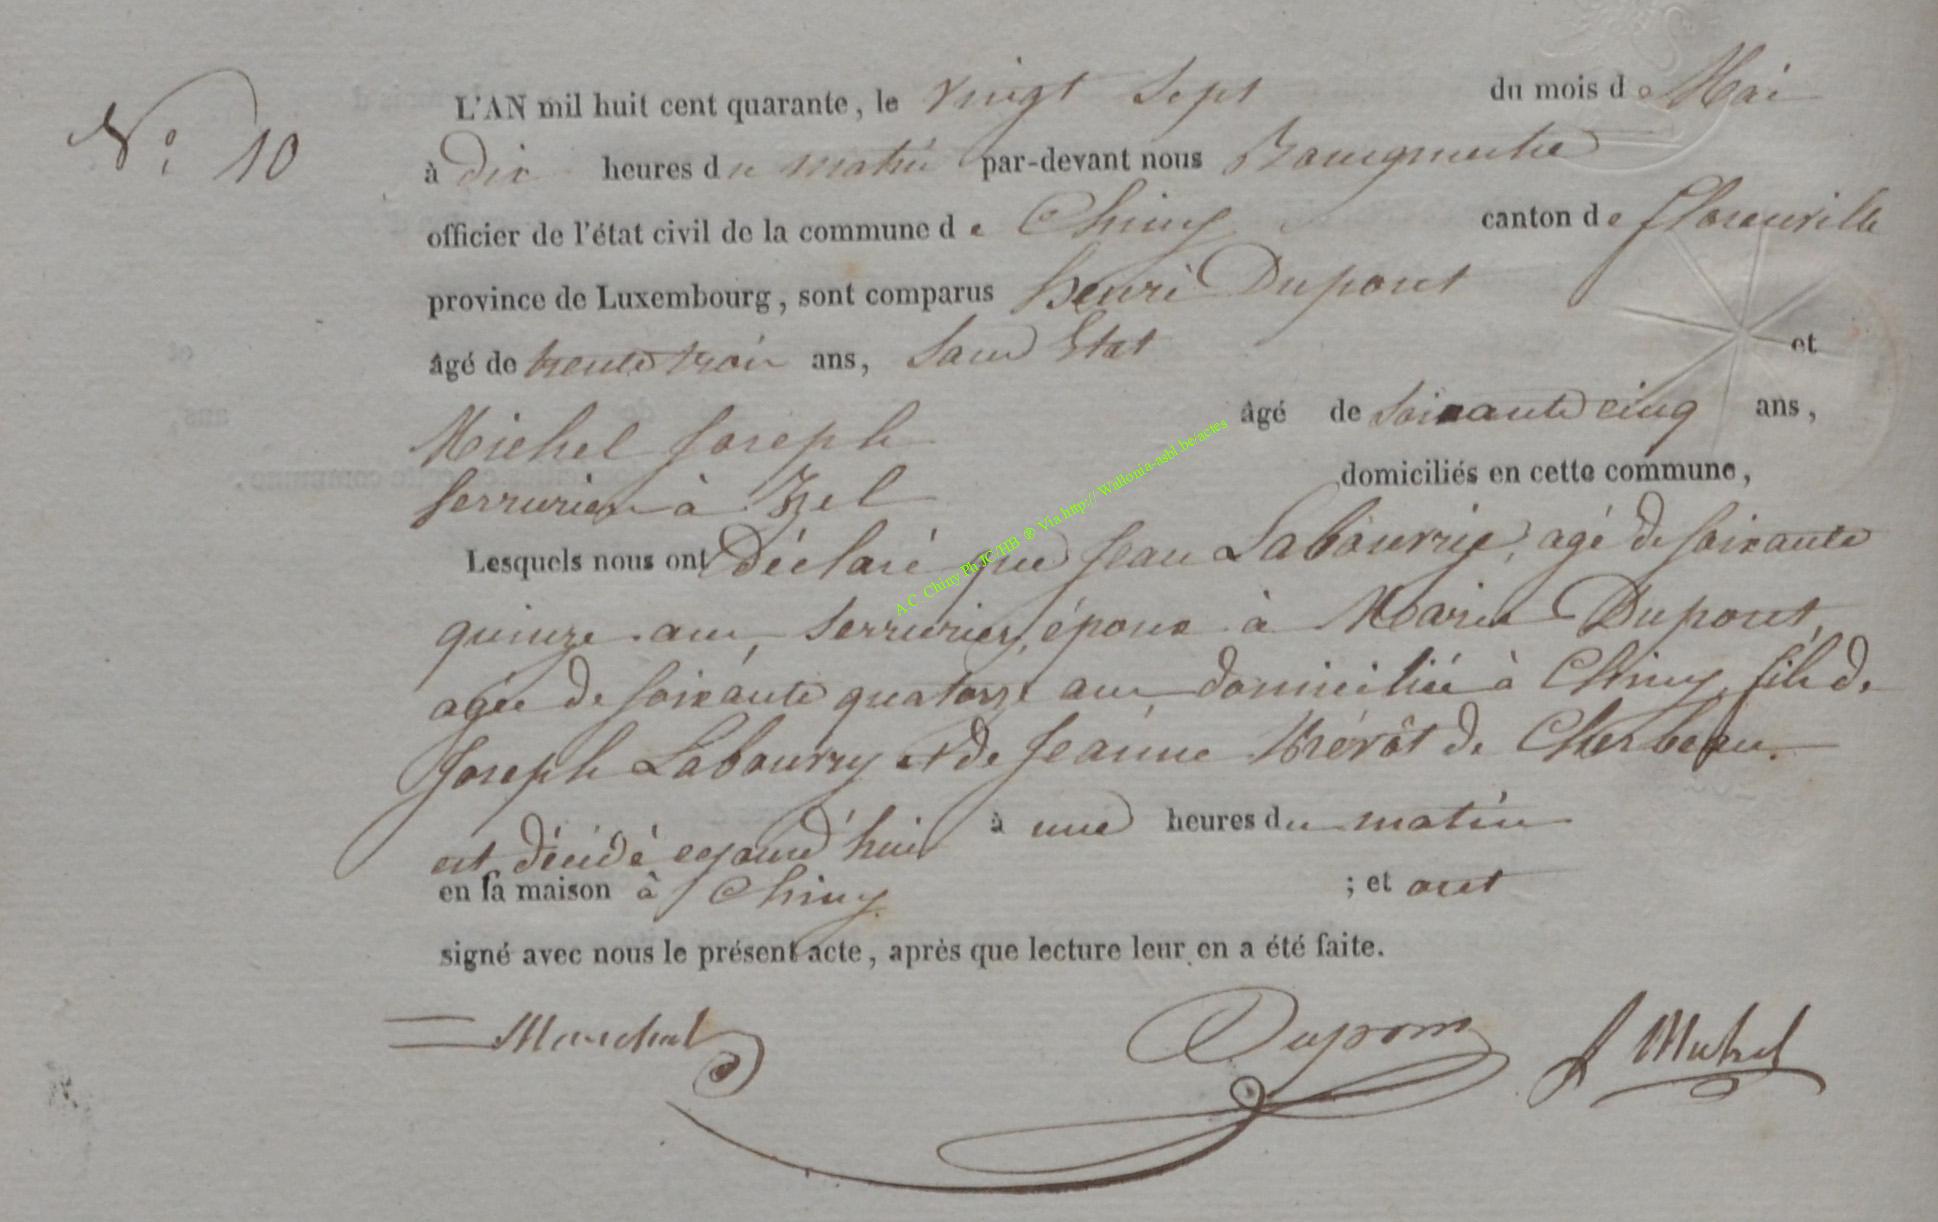 N° 10
L'AN mil huit cent quarante, le vingt sept du mois de Mai
à dix heures du matin par-devant nous Bourgmestre
officier de l'état civil de la commune de Chiny canton de florenville
province de Luxembourg, sont comparus henri Dupont
âgé de trente trois ans, Sans Etat et
Michel Joseph âgé de soixante cinq ans,
serrurier à Izel domiciliés en cette commune,
Lesquels nous ont Déclaré que Jean Labourry, agé de soixante
quinze ans, serrurier, époux à Marie Dupont,
agée de soixante quatorze ans, domiciliée à Chiny, fils de
Joseph Labourry et de Jeanne de Cherbeau.
est décidé cejourd'hui à une heures du matin
en sa maison à Chiny ; et ont
signé avec nous le présent acte, après que lecture leur en a été faite.
Marchal Dupont J Michel
A.C. Chiny Ph JC/HB ® Via http:// Wallonia-asbl.be/actes